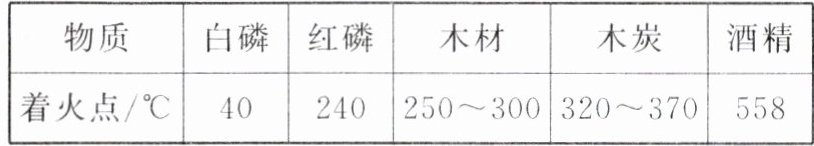 物质 白磷 红磷 木材 木炭 酒精
着火点/℃ 40 240 250～300 320～370 558